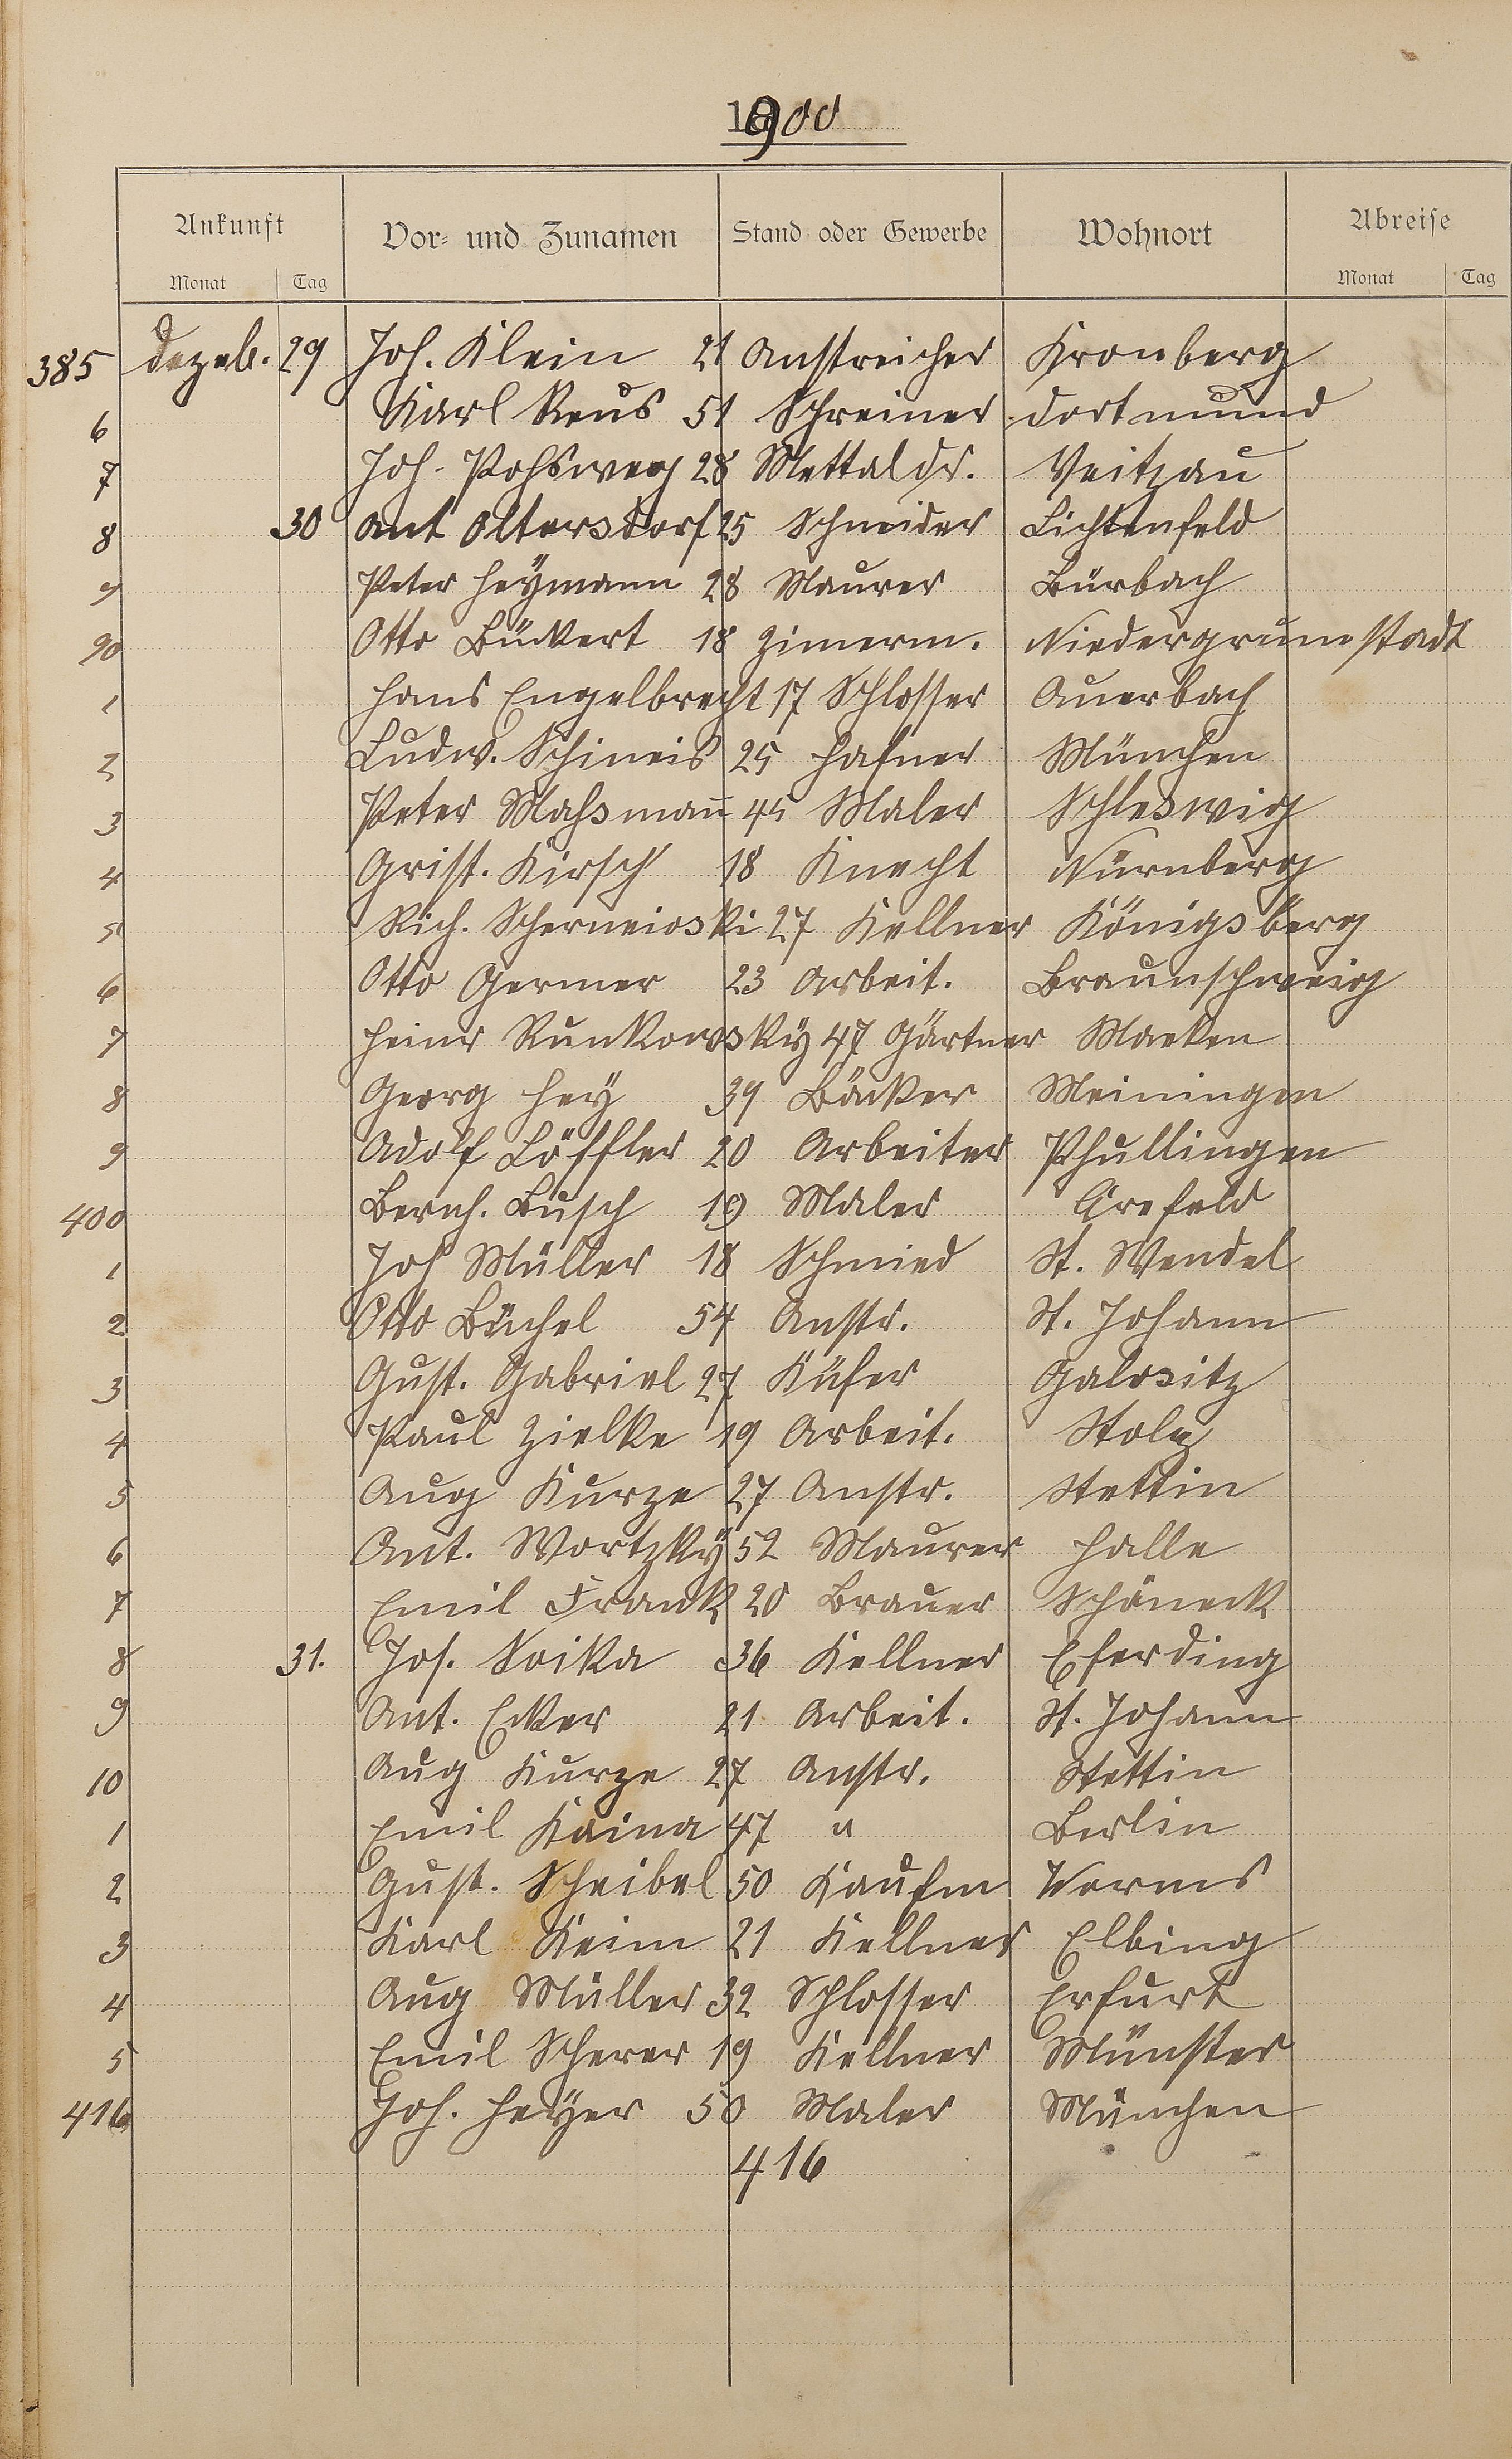 1900
Ankunft Vor- und Zunamen Stand oder Gewerbe Wohnort Abreise
Monat Tag Monat Tag
385 Dezeb. 29 Joh. Klein 21 Anstreicher Kronberg
6 Karl Reus 51 Schreiner Dortmund
7 Joh. Pohsweg 28 Mettaldr. Veitzau
8 30 Ant Oltersdorf 25 Schneider Lichtenfeld
9 Peter Heÿmann 28 Maurer Bürbach
90 Otto Bückert 18 Zimerm. Niedergrumstadt
1 Hans Engelbrecht 17 Schlosser Auerbach
2 Ludw. Schineis 25 Hafner München
3 Peter Maßmañ 45 Maler Schleswig
4 Grist. Kirsch 18 Knecht Nürnberg
5 Rich. Scherneioski 27 Kellner Königsberg
6 Otto Germer 23 Arbeit. Braunschweig
7 Heinr Runkowskÿ 47 Gärtner Marken
8 Georg Heÿ 39 Bäcker Meiningen
9 Adolf Löffler 20 Arbeiter Phullingen
400 Bernh. Busch 19 Maler Crefeld
1 Joh Müller 18 Schmied St. Wendel
2 Otto Büchel 54 Anstr. St. Johann
3 Gust. Gabriel 27 Küfer Galositz
4 Paul Zielke 19 Arbeit. Stolp
5 Aug Kurze 27 Anstr. Stettin
6 Ant. Wortzkÿ 52 Maurer Halle
7 Emil Frank 20 Brauer Schöneck
8 31. Jos. Soika 36 Kellner Eferding
9 Ant. Ecker 21 Arbeit. St. Johann
10 Aug Kurze 27 Anstr. Stettin
1 Emil Kaina 47 " Berlin
2 Gust. Scheibel 50 Kaufm Worms
3 Karl Keim 21 Kellner Elbing
4 Aug Müller 32 Schlosser Erfurt
5 Emil Scherer 19 Kellner Münster
416 Joh. Heÿer 50 Maler München
416